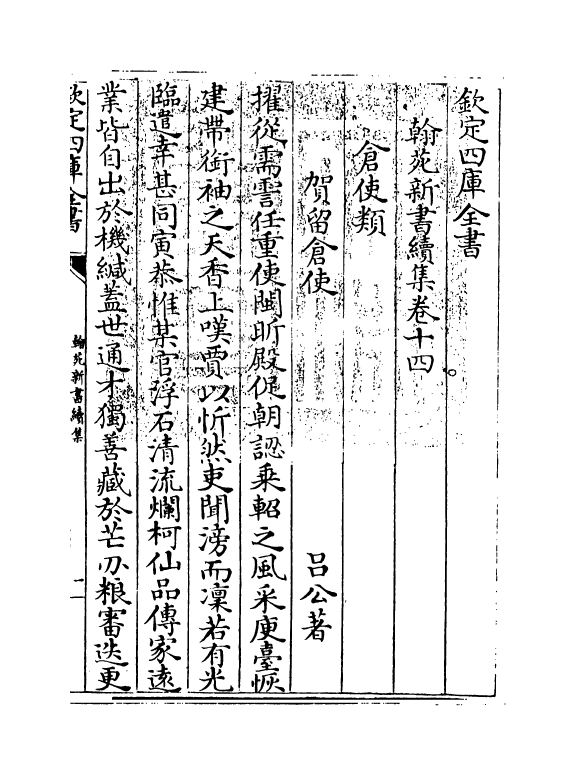 欽定四庫全書
翰苑新書續集卷十四
倉使類
賀留倉使 呂公著
擢從需霅任重使閩昕殿促朝認乘軺之風采庾臺恢
建帶銜袖之天香上嘆賈以忻然吏聞滂而凜若有光
臨遣幸甚同寅恭惟某官浮石清流爛柯仙品傳家遠
業皆自出於機緘蓋世通才獨善藏於芒刃粮審迭更
欽定四庫全書
翰苑新書續集
二